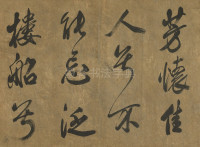 芳懷佳
人兮不
能忘泛
樓船兮